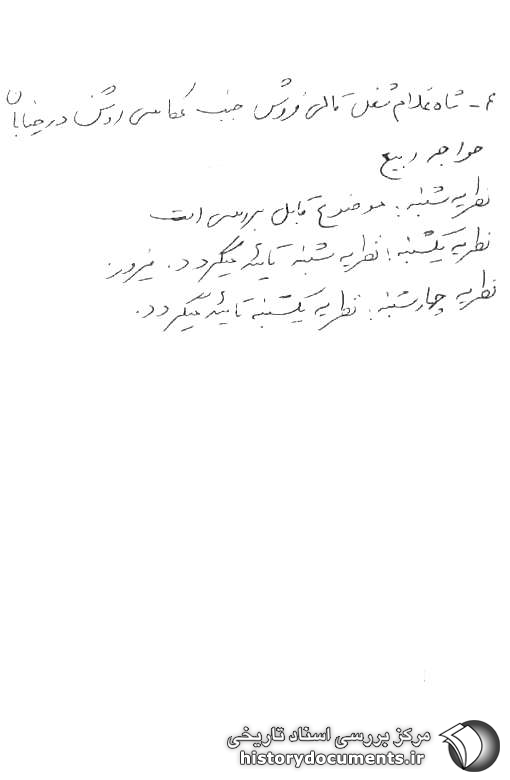 ۶- شاه غلام شغل قالی فروش جنب عکاسی روشن در خیابان
خواجه ربیع
نظریه شنبه: موضوع قابل بررسی است
نظریه یکشنبه: نظریه شنبه تائید میگردد. فیروز
نظریه چهارشنبه: نظریه یکشنبه تائید میگردد.
مرکز بررسی اسناد تاریخی
historydocuments.ir